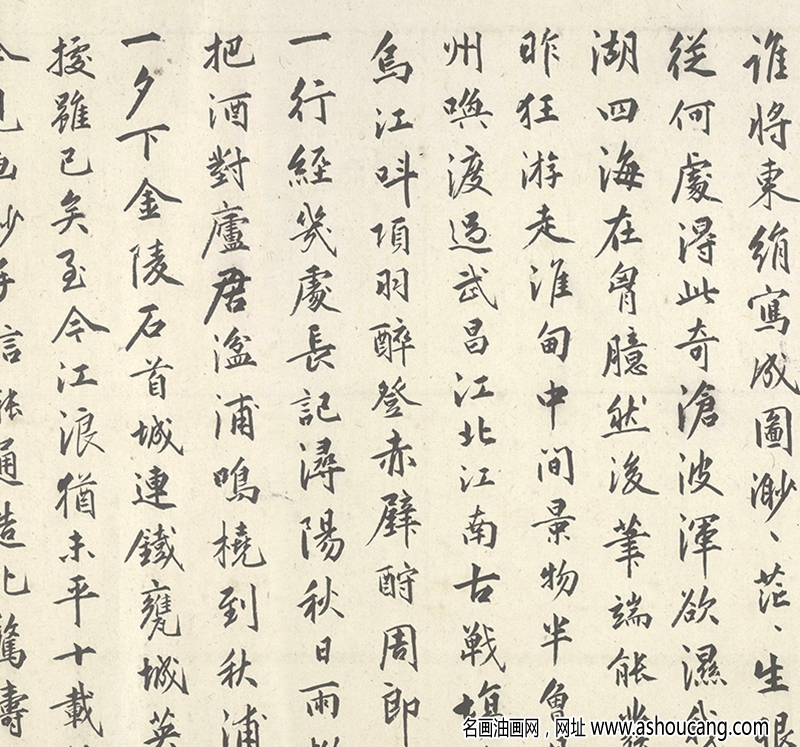 誰將東絹寫成圖渺、茫、生根
從何處淂此奇滄波渾欲濕我
湖四海在胷臆然後筆端能發
昨狂游走淮甸中間景物半曾
州喚渡過武昌江北江南古戰塲
烏江叫項羽醉登赤壁酹周郎
一行經幾處長記潯陽秋日雨
把酒對廬君湓浦鳴橈到秋浦
一夕下金陵石首城連鐵甕城英
擾雖已矣至今江浪猶未平十載
今見畫妙手言能通造化驚濤
名画油画网，网址 www.ashoucang.com